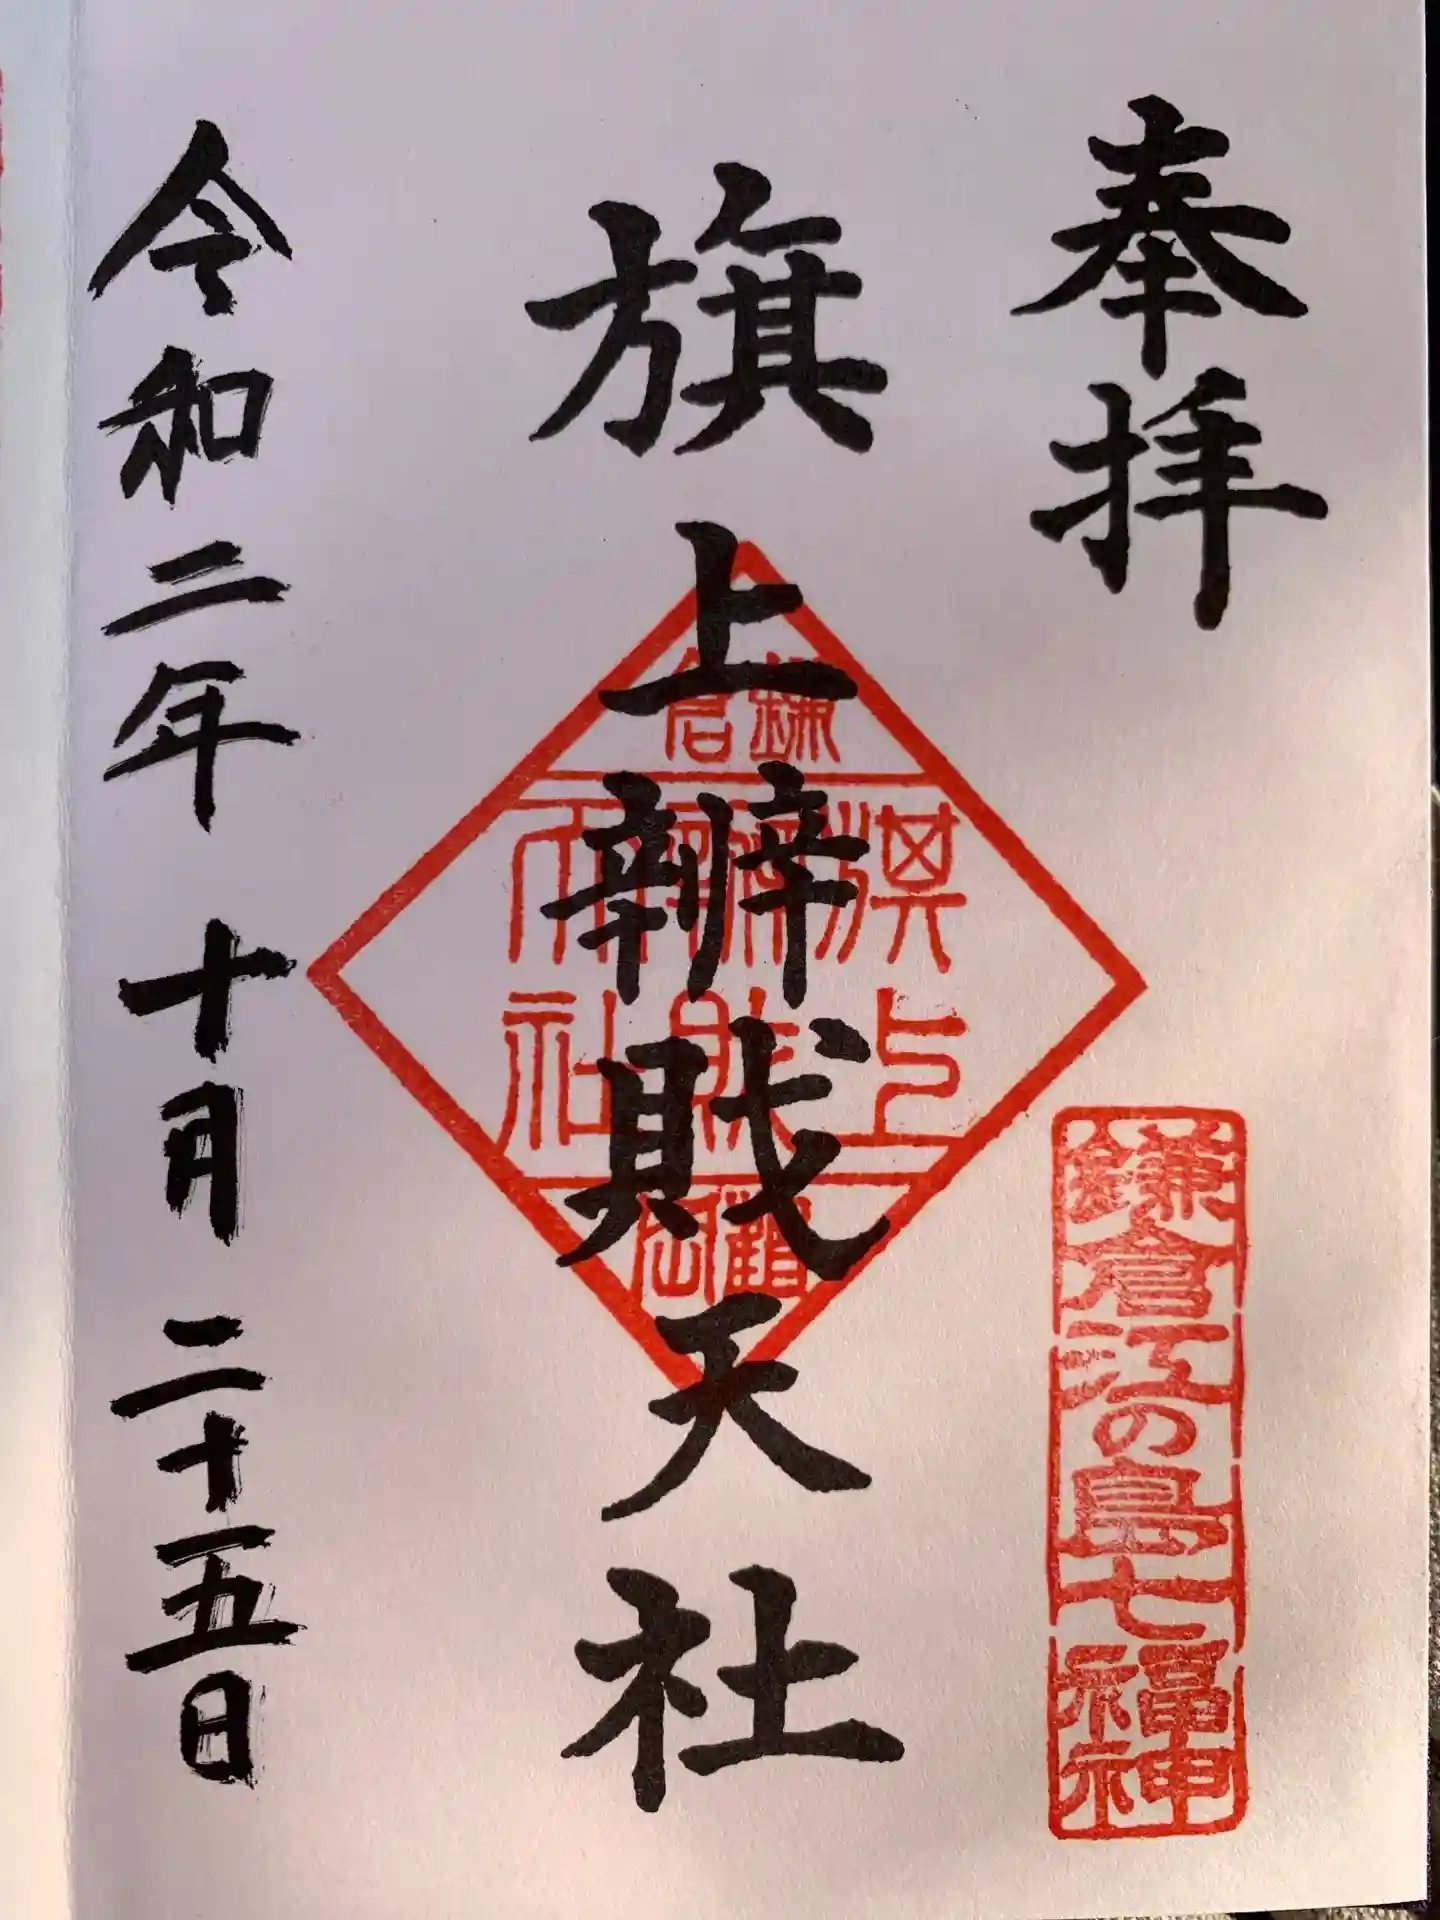 奉拝
鎌倉江の島七福神
旗上辨財天社
鎌倉
旗上
辨財
天社
鶴岡
令和二年十月二十五日